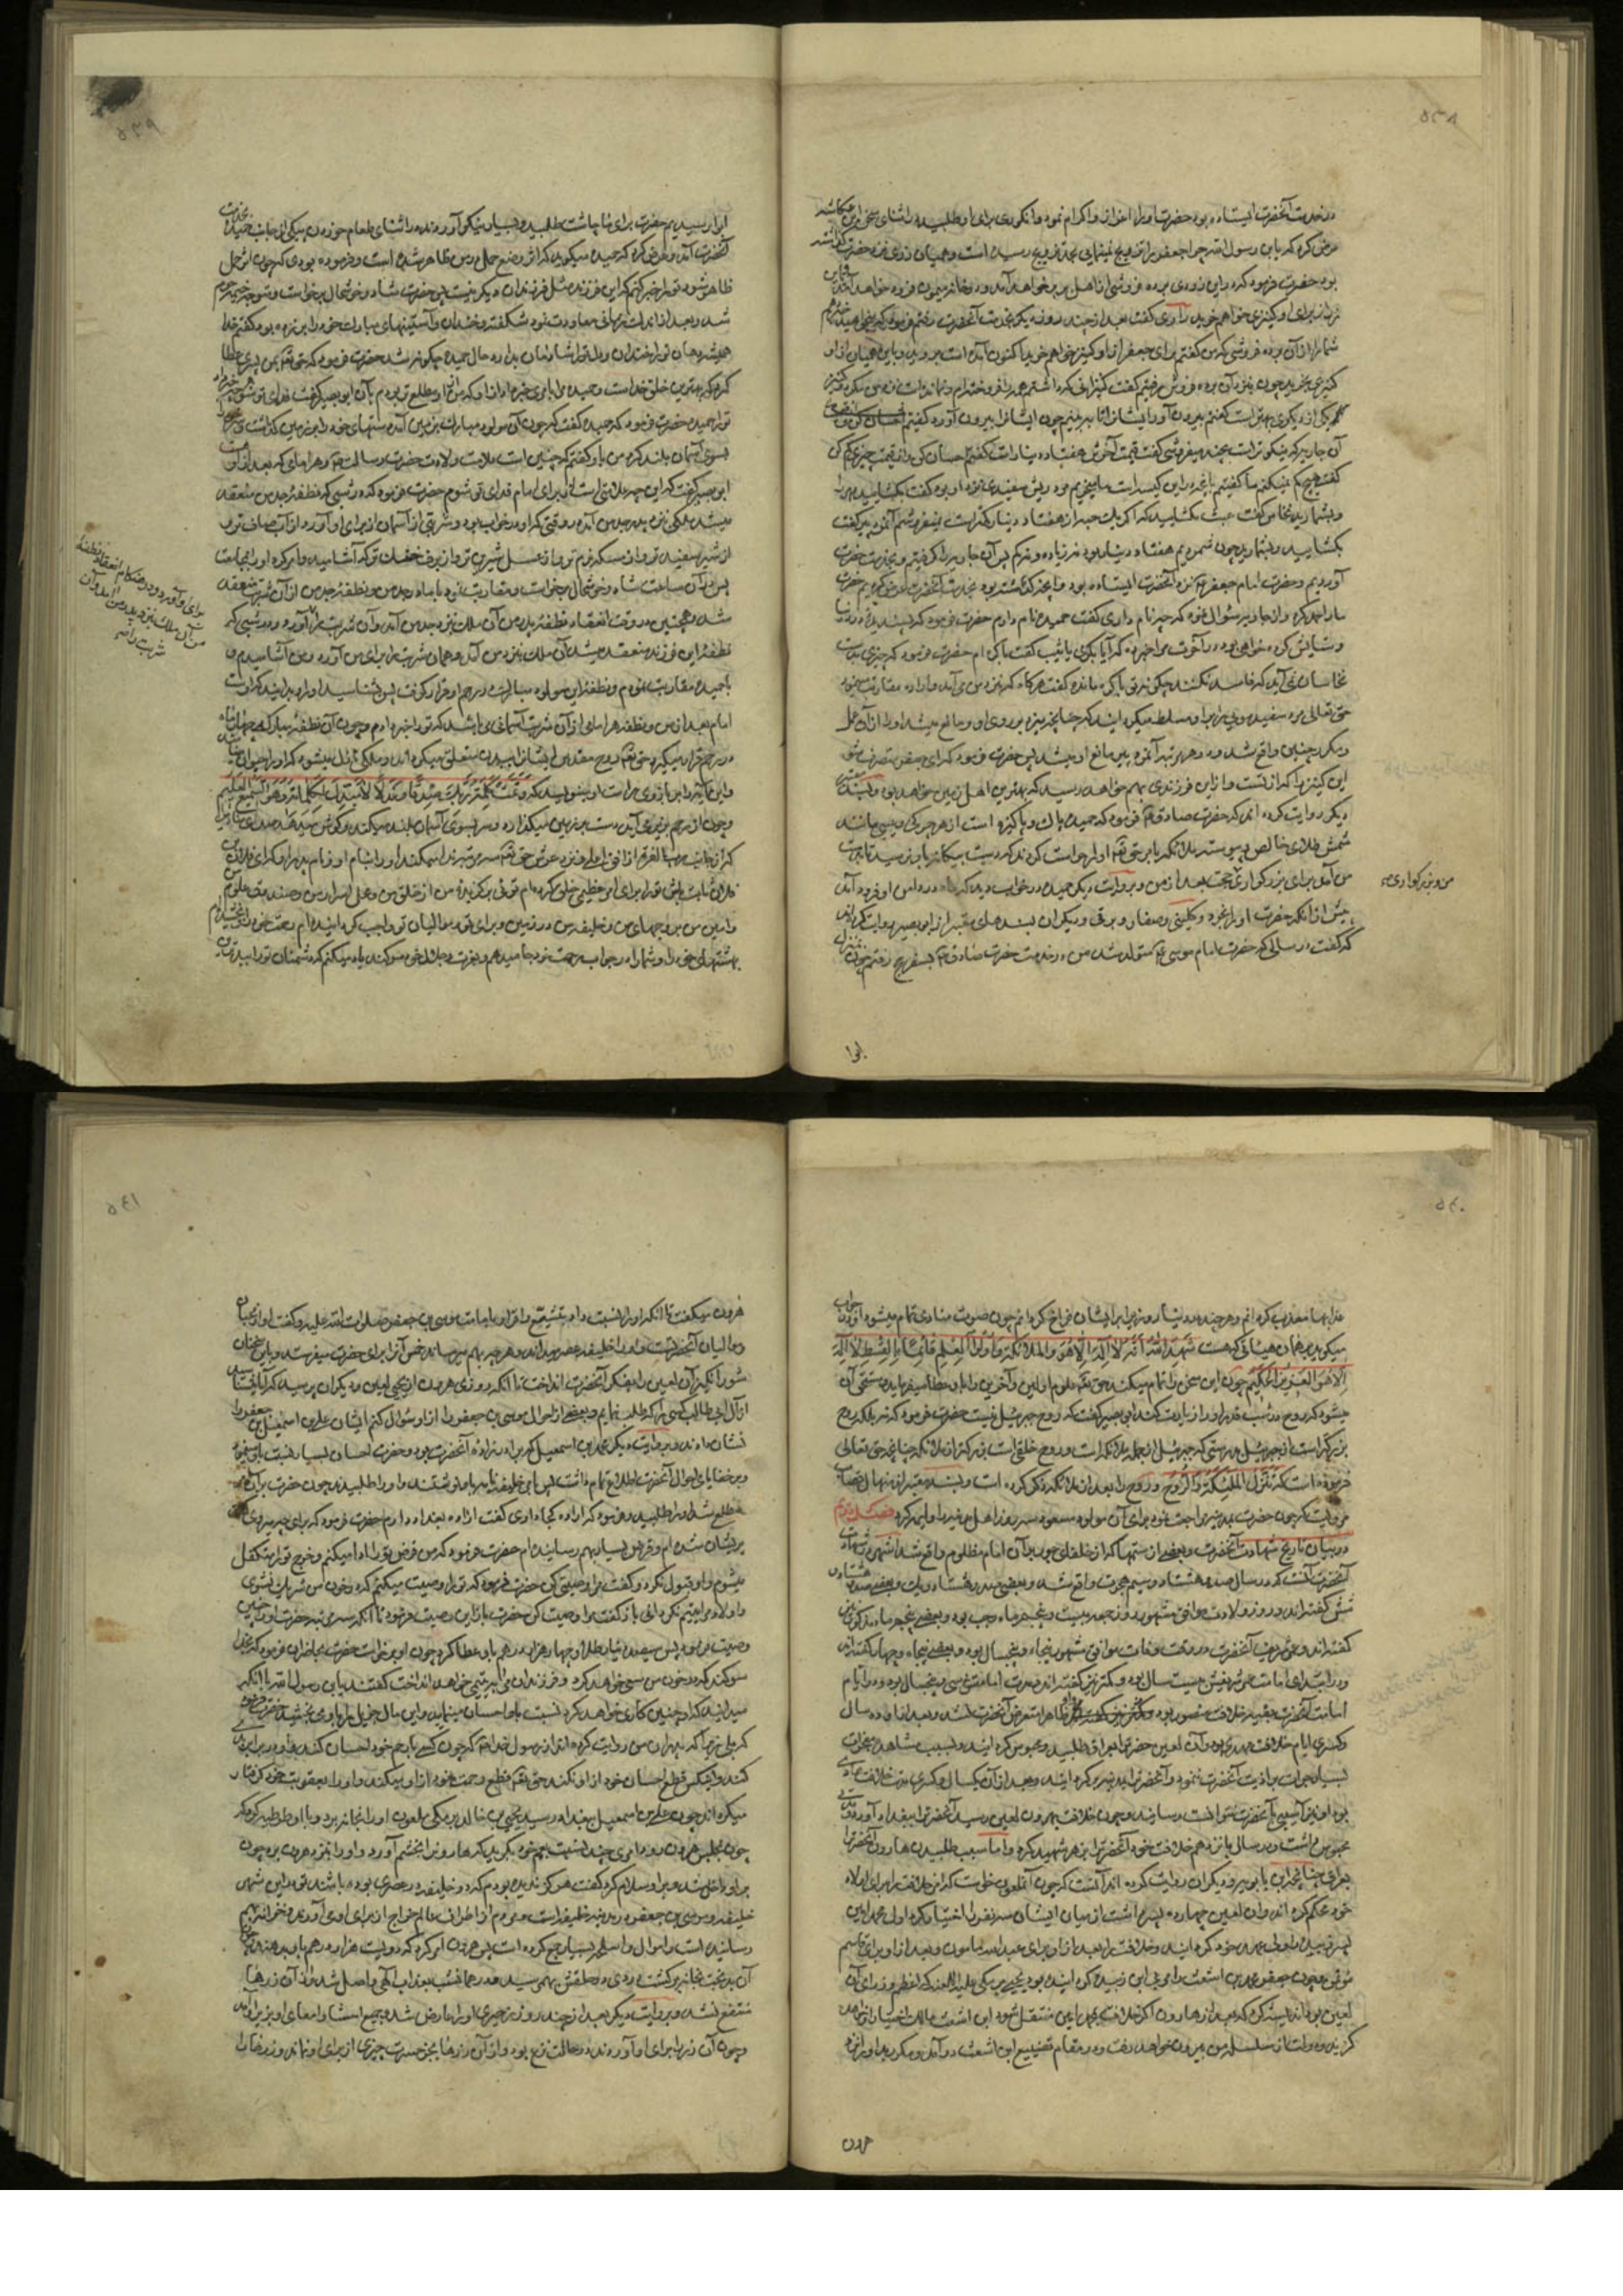 ۵۳۸
در خدمت آنحضرت ایستاده بود حضرت او را اعزاز و اکرام نمود و انگوری برای او طلبید در اثنای سخن ابن عکاشه
عرض کرد که یابن رسول الله چرا جعفر را تزویج نمینمایی بحد تزویج رسیده است و همیان زری نزد حضرت گذاشته
بود حضرت فرمود که در این زودی برده فروشی از اهل بربر خواهد آمد و در خانه میمون فرود خواهد آمد
زر از برای او کنیزی خواهم خرید راوی گفت بعد از چند روز دیگر بخدمت آنحضرت رفتم فرمود که میخواهید خبر دهم
شما را از آن برده فروشی که من گفتم برای جعفر از او کنیز خواهم خرید اکنون آمده است بروید و باین همیان از او
کنیزی بخرید چون بنزد آن برده فروش رفتیم گفت کنیزانی که داشتم همه را فروخته‌ام و نمانده است نزد من مگر دو کنیز
یکی از دیگری بهتر است گفتیم بیرون آور ایشان را تا ببینیم چون ایشان را بیرون آورد گفتیم
آن جاریه که نیکوتر است بچند میفروشی گفت قیمت آخرش هفتاد دینار است گفتیم احسان کن و از قیمت چیزی کم کن
گفت هیچ کم نمیکنم ما گفتیم بآنچه در این کیسه است ما میخریم مرد ریش سفیدی نزد او بود گفت بگشایید مهر را
و بشمارید نخاس گفت عبث مگشایید که اگر یک حبه از هفتاد دینار کمتر است نمیفروشم آنمرد پیر گفت
بگشایید و بشمارید چون شمردیم هفتاد دینار بود نه زیاد و نه کم پس آن جاریه را گرفتیم و بخدمت حضرت
آوردیم و حضرت امام جعفر نزد آنحضرت ایستاده بود و آنچه گذشته بود بخدمت آنحضرت عرض کردیم حضرت
ما را حمد کرد و از جاریه سؤال نمود که چه نام داری گفت حمیده نام دارم حضرت فرمود که پسندیده در دنیا
و ستایش کرده خواهی بود در آخرت مرا خبر ده که آیا بکری یا ثیب گفت باکره‌ام حضرت فرمود که چیزی بدست
نخاسان نمی‌آید که فاسد نکنند چگونه تو باکره مانده گفت هرگاه که نزد من می‌آمد و اراده مقاربت مینمود
حق تعالی مرد سفید مویی را بر او مسلط میگردانید که طپانچه میزد بر روی او و مانع میشد او را از آن عمل
و مکرر چنین واقع شد و در هر مرتبه آنمرد پیر مانع او میشد پس حضرت فرمود که ای جعفر متصرف شو
این کنیز را که از تست و از این فرزندی بهم خواهد رسید که بهترین اهل زمین خواهد بود و بسند معتبر
دیگر روایت کرده‌اند که حضرت صادق ع فرمود که حمیده پاک و پاکیزه است از هر چرکی و عیبی مانند
شمش طلای خالص پیوسته ملائکه بامر حق تعالی او را حراست کردند که دست بیگانه باو نرسید تا بدست
من آمد برای بزرگواری حجت بعد از من و بروایت دیگر حمیده در خواب دید که ماه در دامن او فرود آمد
من و بزرگواری صح
پیش از آنکه حضرت او را بخرد و کلینی و صفار و برقی و دیگران بسندهای معتبر از ابو بصیر روایت کرده‌اند
که گفت در سالی که حضرت امام موسی ع متولد شد من در خدمت حضرت صادق ع بسفر حج رفتم چون بمنزل
ابوا
۵۳۹
ابوا رسیدیم حضرت برای ما چاشت طلبید و بسیار و نیکو آوردند در اثنای طعام خوردن پیکی از جانب حمیده بخدمت
آنحضرت آمد و عرض کرد که حمیده میگوید که اثر وضع حمل در من ظاهر شده است و فرموده بودی که چون اثر حمل
ظاهر شود ترا خبر کنم که این فرزند مثل فرزندان دیگر نیست پس حضرت شاد و خوشحال برخاست و متوجه خیمه حرم
شد و بعد از اندک زمانی معاودت نمود شکفته و خندان و آستینهای مبارک خود را بر زده بود گفتم خدا
همیشه دهان ترا خندان و دل ترا شادمان بدارد حال حمیده چگونه شد حضرت فرمود که حق تعالی بمن پسری عطا
کرد که بهترین خلق خداست و حمیده مرا بامری خبر داد از او که من از او مطلع تر بودم بآن ابو بصیر گفت فدای تو شوم چه خبر داد
ترا حمیده حضرت فرمود که حمیده گفت که چون آن مولود مبارک بزمین آمد دستهای خود را بر زمین گذاشت و سر خود را
بسوی آسمان بلند کرد من باو گفتم که چنین است علامت ولادت حضرت رسالت و هر امامی که بعد از او
ابو بصیر گفت که این چه علامتی است از برای امام فدای تو شوم حضرت فرمود که در شبی که نطفه جد من منعقد
میشد ملکی نزد پدر جد من آمد در وقتی که او در خواب بود و شربتی از آسمان از برای او آورد از آب صاف تر و
از شیر سفید تر و از مسکه نرم تر و از عسل شیرین تر و از برف خنک تر که آشامید و امر کرد او را بجماعت
پس در آن ساعت شاد و خوشحال برخاست و مقاربت نمود با مادر جد من و نطفه جد من از آن شربت منعقد
شد و همچنین در وقت انعقاد نطفه پدر من آن ملک بنزد جد من آمد و آن شربت را آورد و در شبی که
برای او آورد و در هنگام انعقاد نطفه
من آن ملک بنزد پدر من آمد و آن
شربت را صح
نطفه این فرزند منعقد میشد آن ملک بنزد من آمد و همان شربت را برای من آورد و من آشامیدم و
با حمیده مقاربت نمودم و نطفه این مولود مبارک در رحم او قرار گرفت پس بشناسید او را و بدانید که اوست
امام بعد از من و نطفه هر امامی از آن شربت آسمانی می‌باشد که ترا خبر دادم و چون آن نطفه مبارکه چهل شب
در رحم قرار میگیرد حق تعالی روح مقدس ایشان را ببدن متعلق میگرداند و ملکی نازل میشود که او را حیوان
و این آیه را بر بازوی راست او مینویسد که وَتَمَّتْ كَلِمَةُ رَبِّكَ صِدْقًا وَعَدْلًا لَا مُبَدِّلَ لِكَلِمَاتِهِ وَهُوَ السَّمِيعُ الْعَلِيمُ
و چون از رحم بزیر می‌آید دست بر زمین میگذارد و سر بسوی آسمان بلند میکند
که از جانب رب العزة از افق اعلی از نزد عرش حق تعالی سه مرتبه ندا میکند او را بنام او و نام پدر او که ای فلان بن
فلان ثابت باش ترا برای امر عظیمی خلق کرده‌ام توئی برگزیده من از خلق من و محل اسرار من و صندوق علوم من
و امین من بر وحیهای من و خلیفه من در زمین و برای تو و موالیان تو واجب گردانیده‌ام رحمت خود را و بخشیده‌ام
بهشتهای خود را و شما را در جوار رحمت خود جا میدهم و بعزت و جلال خود سوگند یاد میکنم که دشمنان ترا
۵۴۰
عذابها معذب گردانم و هر چند در دنیا روزی را بر ایشان فراخ کرده‌ام چون صوت منادی تمام میشود او در جواب
میگوید بر همان هیئاتی که هست شَهِدَ اللَّهُ أَنَّهُ لَا إِلَهَ إِلَّا هُوَ وَالْمَلَائِكَةُ وَأُولُو الْعِلْمِ قَائِمًا بِالْقِسْطِ لَا إِلَهَ
إِلَّا هُوَ الْعَزِيزُ الْحَكِيمُ چون این سخن را تمام میکند حق تعالی علوم اولین و آخرین را باو عطا میفرماید و مستحق آن
میشود که روح در شب قدر او را زیارت کند ابو بصیر گفت که روح جبرئیل نیست حضرت فرمود که نه بلکه روح
بزرگتر است از جبرئیل بدرستی که جبرئیل از جمله ملائکه است و روح خلقی است بزرگتر از ملائکه چنانچه حق تعالی
فرموده است که تَنَزَّلُ الْمَلَائِكَةُ وَالرُّوحُ و روح را بعد از ملائکه ذکر کرده است و بسند معتبر از منهال قصاب
مرویست که چون حضرت بمدینه مراجعت نمود برای آن مولود مسعود سه روز اهل مدینه را ولیمه کرد فصل دوم
در بیان تاریخ شهادت آنحضرت و بعضی از ستمها که از خلفای جور بر آن امام مظلوم واقع شد اشهر در شهادت
آنحضرت آنست که در سال صد و هشتاد و سیم هجرت واقع شد و بعضی صد و هشتاد و یک و بعضی صد و هشتاد و
شش گفته‌اند و روز ولادت موافق مشهور روز جمعه بیست و پنجم ماه رجب بود و بعضی پنجم ماه مذکور نیز
گفته‌اند و عمر شریف آنحضرت در وقت وفات موافق مشهور پنجاه و پنجسال بود و بعضی پنجاه و چهار گفته‌اند
و در ابتدای امامت عمر شریفش بیست سال بود و کمتر نیز گفته‌اند و مدت امامتش سی و پنجسال بود و در ایام
امامت آنحضرت بقیه خلافت منصور بود و ظاهرا متعرض آنحضرت نشد و بعد از او ده سال
و کسری ایام خلافت مهدی بود و آن لعین حضرت را بعراق طلبید و محبوس گردانید و بسبب مشاهده معجزات
بسیار جرات بر اذیت آنحضرت ننمود و آنحضرت را بمدینه برگردانید و بعد از آن یکسال و کسری مدت خلافت هادی
بود او نیز آسیبی بآنحضرت نتوانست رسانید و چون خلافت بهرون لعین رسید آنحضرت را ببغداد آورد و مدتی
محبوس داشت و در سال پانزدهم خلافت خود آنحضرت را بزهر شهید کرد و اما سبب طلبیدن هارون آنحضرت را
بعراق چنانچه ابن بابویه و دیگران روایت کرده‌اند آنست که چون آنملعون خواست که امر خلافت را برای اولاد
خود محکم گرداند و آن لعین چهارده پسر داشت از میان ایشان سه نفر را اختیار کرد اول محمد امین
پسر زبیده را ولی عهد خود گردانید و خلافت را بعد از او برای عبدالله مامون و بعد از او برای قاسم
مؤتمن و چون جعفر بن محمد بن اشعث را مربی ابن زبیده گردانیده بود یحیی برمکی علیه اللعنه که اعظم وزرای آن
لعین بود اندیشه کرد که بعد از هارون اگر خلافت بمحمد امین منتقل شود ابن اشعث مالک اختیار او خواهد
گردید و دولت از سلسله من بیرون خواهد رفت و در مقام تضییع ابن اشعث درآمد و مکرر بد او را نزد
هرون
۵۴۱
هرون میگفت تا آنکه او را نسبت داد بتشیع و اقرار بامامت موسی بن جعفر صلوات الله علیه و گفت او از محبان
و موالیان آنحضرتست و او را خلیفه عصر میداند و هر چه بهم میرساند خمس آنرا برای حضرت میفرستد و باین سخنان
شورانگیز آن لعین را بفکر آنحضرت انداخت تا آنکه روزی هرون از یحیی لعین و دیگران پرسید که آیا میشناسید
از آل ابی طالب کسی را که طلب نمایم و بعضی از احوال موسی بن جعفر را از او سؤال کنم ایشان علی بن اسمعیل بن جعفر را
نشان دادند و بروایت دیگر محمد بن اسمعیل که برادر زاده آنحضرت بود و حضرت احسان بسیار نسبت باو مینمود
و بر خفایای احوال آنحضرت اطلاع تمام داشت پس بامر خلیفه نامه باو نوشتند و او را طلبیدند چون حضرت بر آن
مطلع شد او را طلبید و فرمود که اراده کجا داری گفت اراده بغداد دارم حضرت فرمود که برای چه میروی گفت
پریشان شده‌ام و قرض بسیار بهم رسانیده‌ام حضرت فرمود که من قرض ترا ادا میکنم و خرج ترا متکفل
میشوم و او قبول نکرد و گفت مرا وصیتی کن حضرت فرمود که ترا وصیت میکنم که در خون من شریک نشوی
و اولاد مرا یتیم نگردانی باز گفت مرا وصیت کن حضرت باز این وصیت فرمود تا آنکه سه مرتبه حضرت او را چنین
وصیت فرمود پس سیصد دینار طلا و چهار هزار درهم باو عطا کرد چون او برخاست حضرت بحاضران فرمود که بخدا
سوگند که در خون من سعی خواهد کرد و فرزندان مرا بیتیمی خواهد انداخت گفتند یابن رسول الله با آنکه
میدانید که او چنین کاری خواهد کرد نسبت باو احسان مینمایید و این مال جزیل را باو می‌بخشید حضرت فرمود
که بلی زیرا که پدران من روایت کرده‌اند از رسول خدا که چون کسی با رحم خود احسان کند و او در برابر بدی
کند و اینکس قطع احسان خود از او نکند حق تعالی قطع رحمت خود از او میکند و او را بعقوبت خود گرفتار
میگرداند چون علی بن اسمعیل ببغداد رسید یحیی بن خالد برمکی ملعون او را بخانه برد و با او توطئه کرد که
چون بمجلس هرون رود امری چند نسبت بعم خود بگوید که هارون را بخشم آورد و او را بنزد هرون برد چون
بر او داخل شد و بر او سلام کرد گفت هرگز ندیده بودم که دو خلیفه در عصری بوده باشند تو در این شهر
خلیفه و موسی بن جعفر در مدینه خلیفه است و مردم از اطراف عالم خراج از برای او می‌آورند و خزانه بهم
رسانیده است و اموال و اسلحه بسیار جمع کرده است پس هرون امر کرد که دویست هزار درهم باو بدهند چون
آن بدبخت بخانه برگشت دردی در حلقش بهم رسید و در همانشب بعذاب الهی واصل شد و از آن زرها
منتفع نشد و بروایت دیگر بعد از چند روز زحیری او را عارض شد و جمیع احشا و امعای او بزیر آمد
و چون آن زر را برای او آوردند در حالت نزع بود و از آن زرها بجز حسرت چیزی از برای او نماند و زر خلفا را